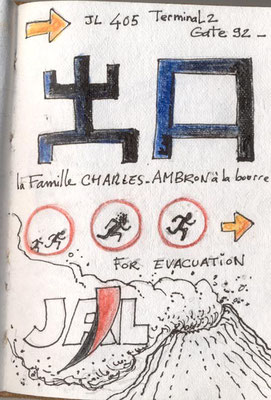 JL 405 Terminal.2
Gate 92 -
出口
la Famille CHARLES-AMBRON à la bourre
FOR EVACUATION
JAL